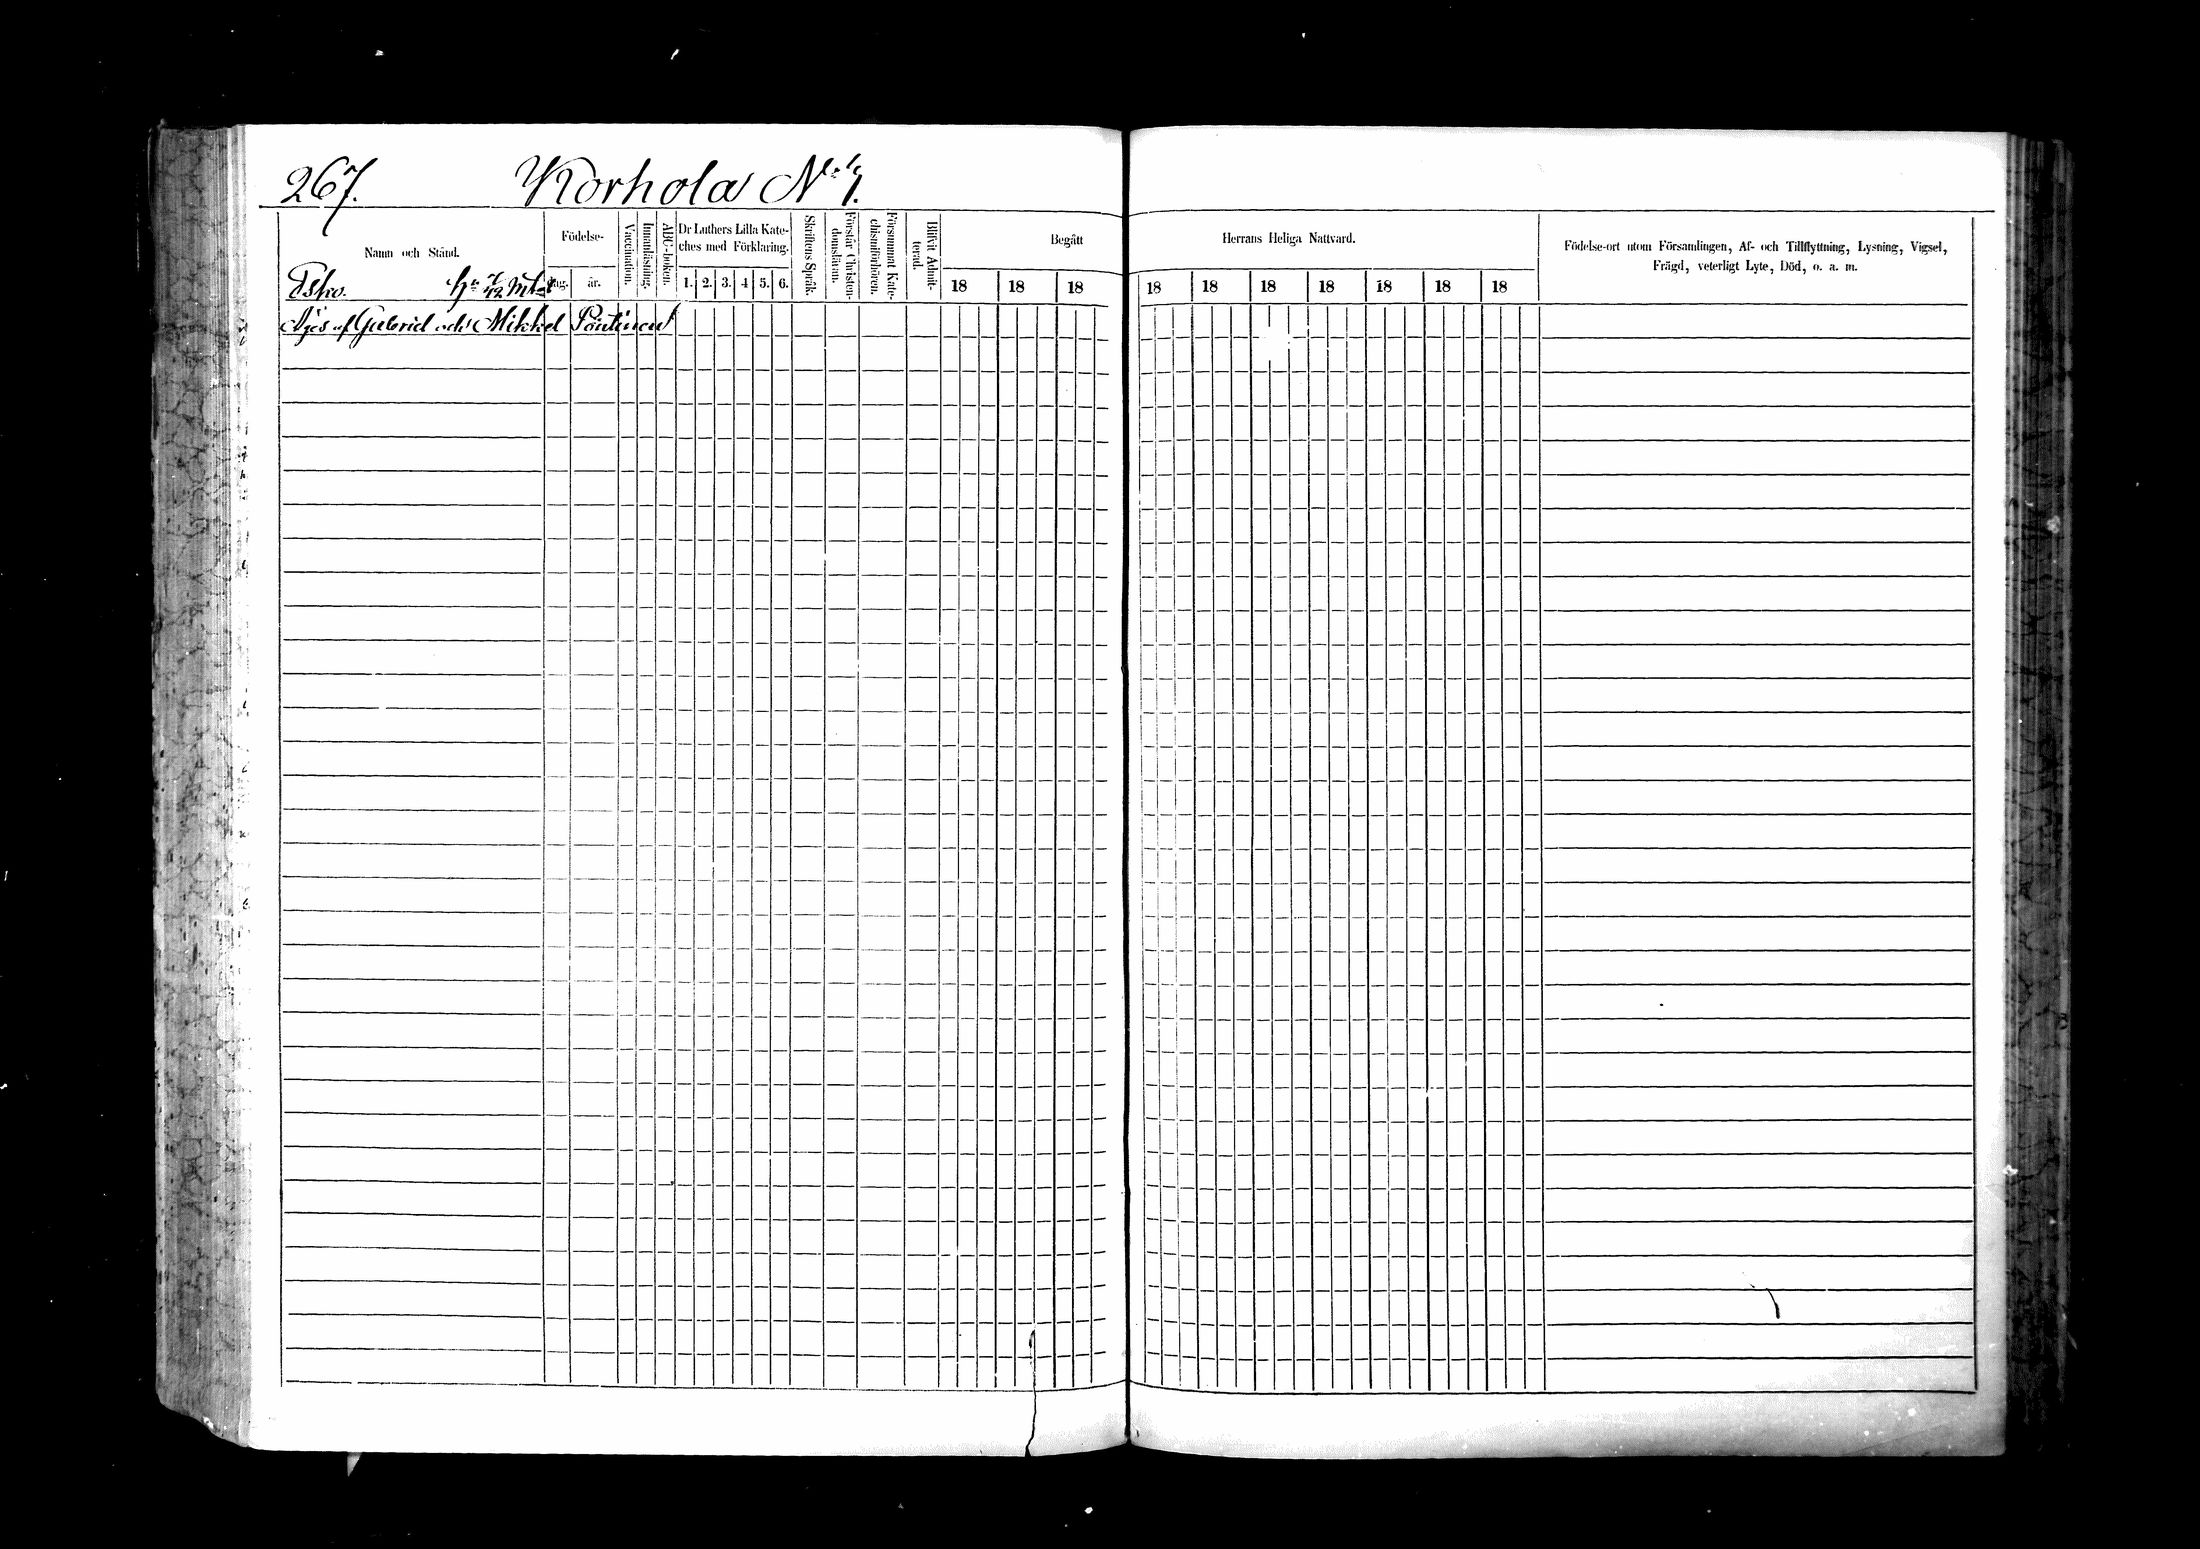 267. Korhola No
Namn och Stånd.
Födelse-
dag. år.
Vaccination.
Innanläsning.
ABC-boken.
Dr Luthers Lilla Kate-
ches med Förklaring.
1. 2. 3. 4 5. 6.
Skriftens Språk.
Förstår Christen-
domslätan.
Försummat Kate-
chismiförhören.
Blifvit Admit-
terad.
Begått
18 18 18
Herrans Heliga Nattvard.
18 18 18 18 18 18 18
Födelse-ort utom Församlingen, Af- och Tillflyttning, Lysning, Vigsel,
Frägd, veterligt Lyte, Död, o. a. m.
Esko.
Äges af Gabriel och Mikkel Pöntinen